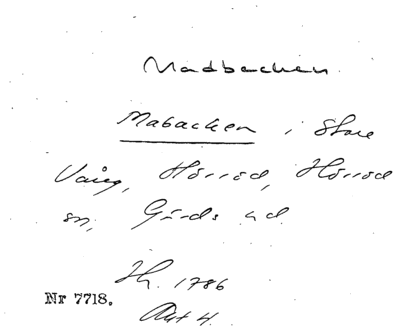 Madbacken
Mabacken i Store
Vång, Hörröd, Hörröd
sn, Gärds hd.
Hr. 1786
Nr 7718.
Akt 4.